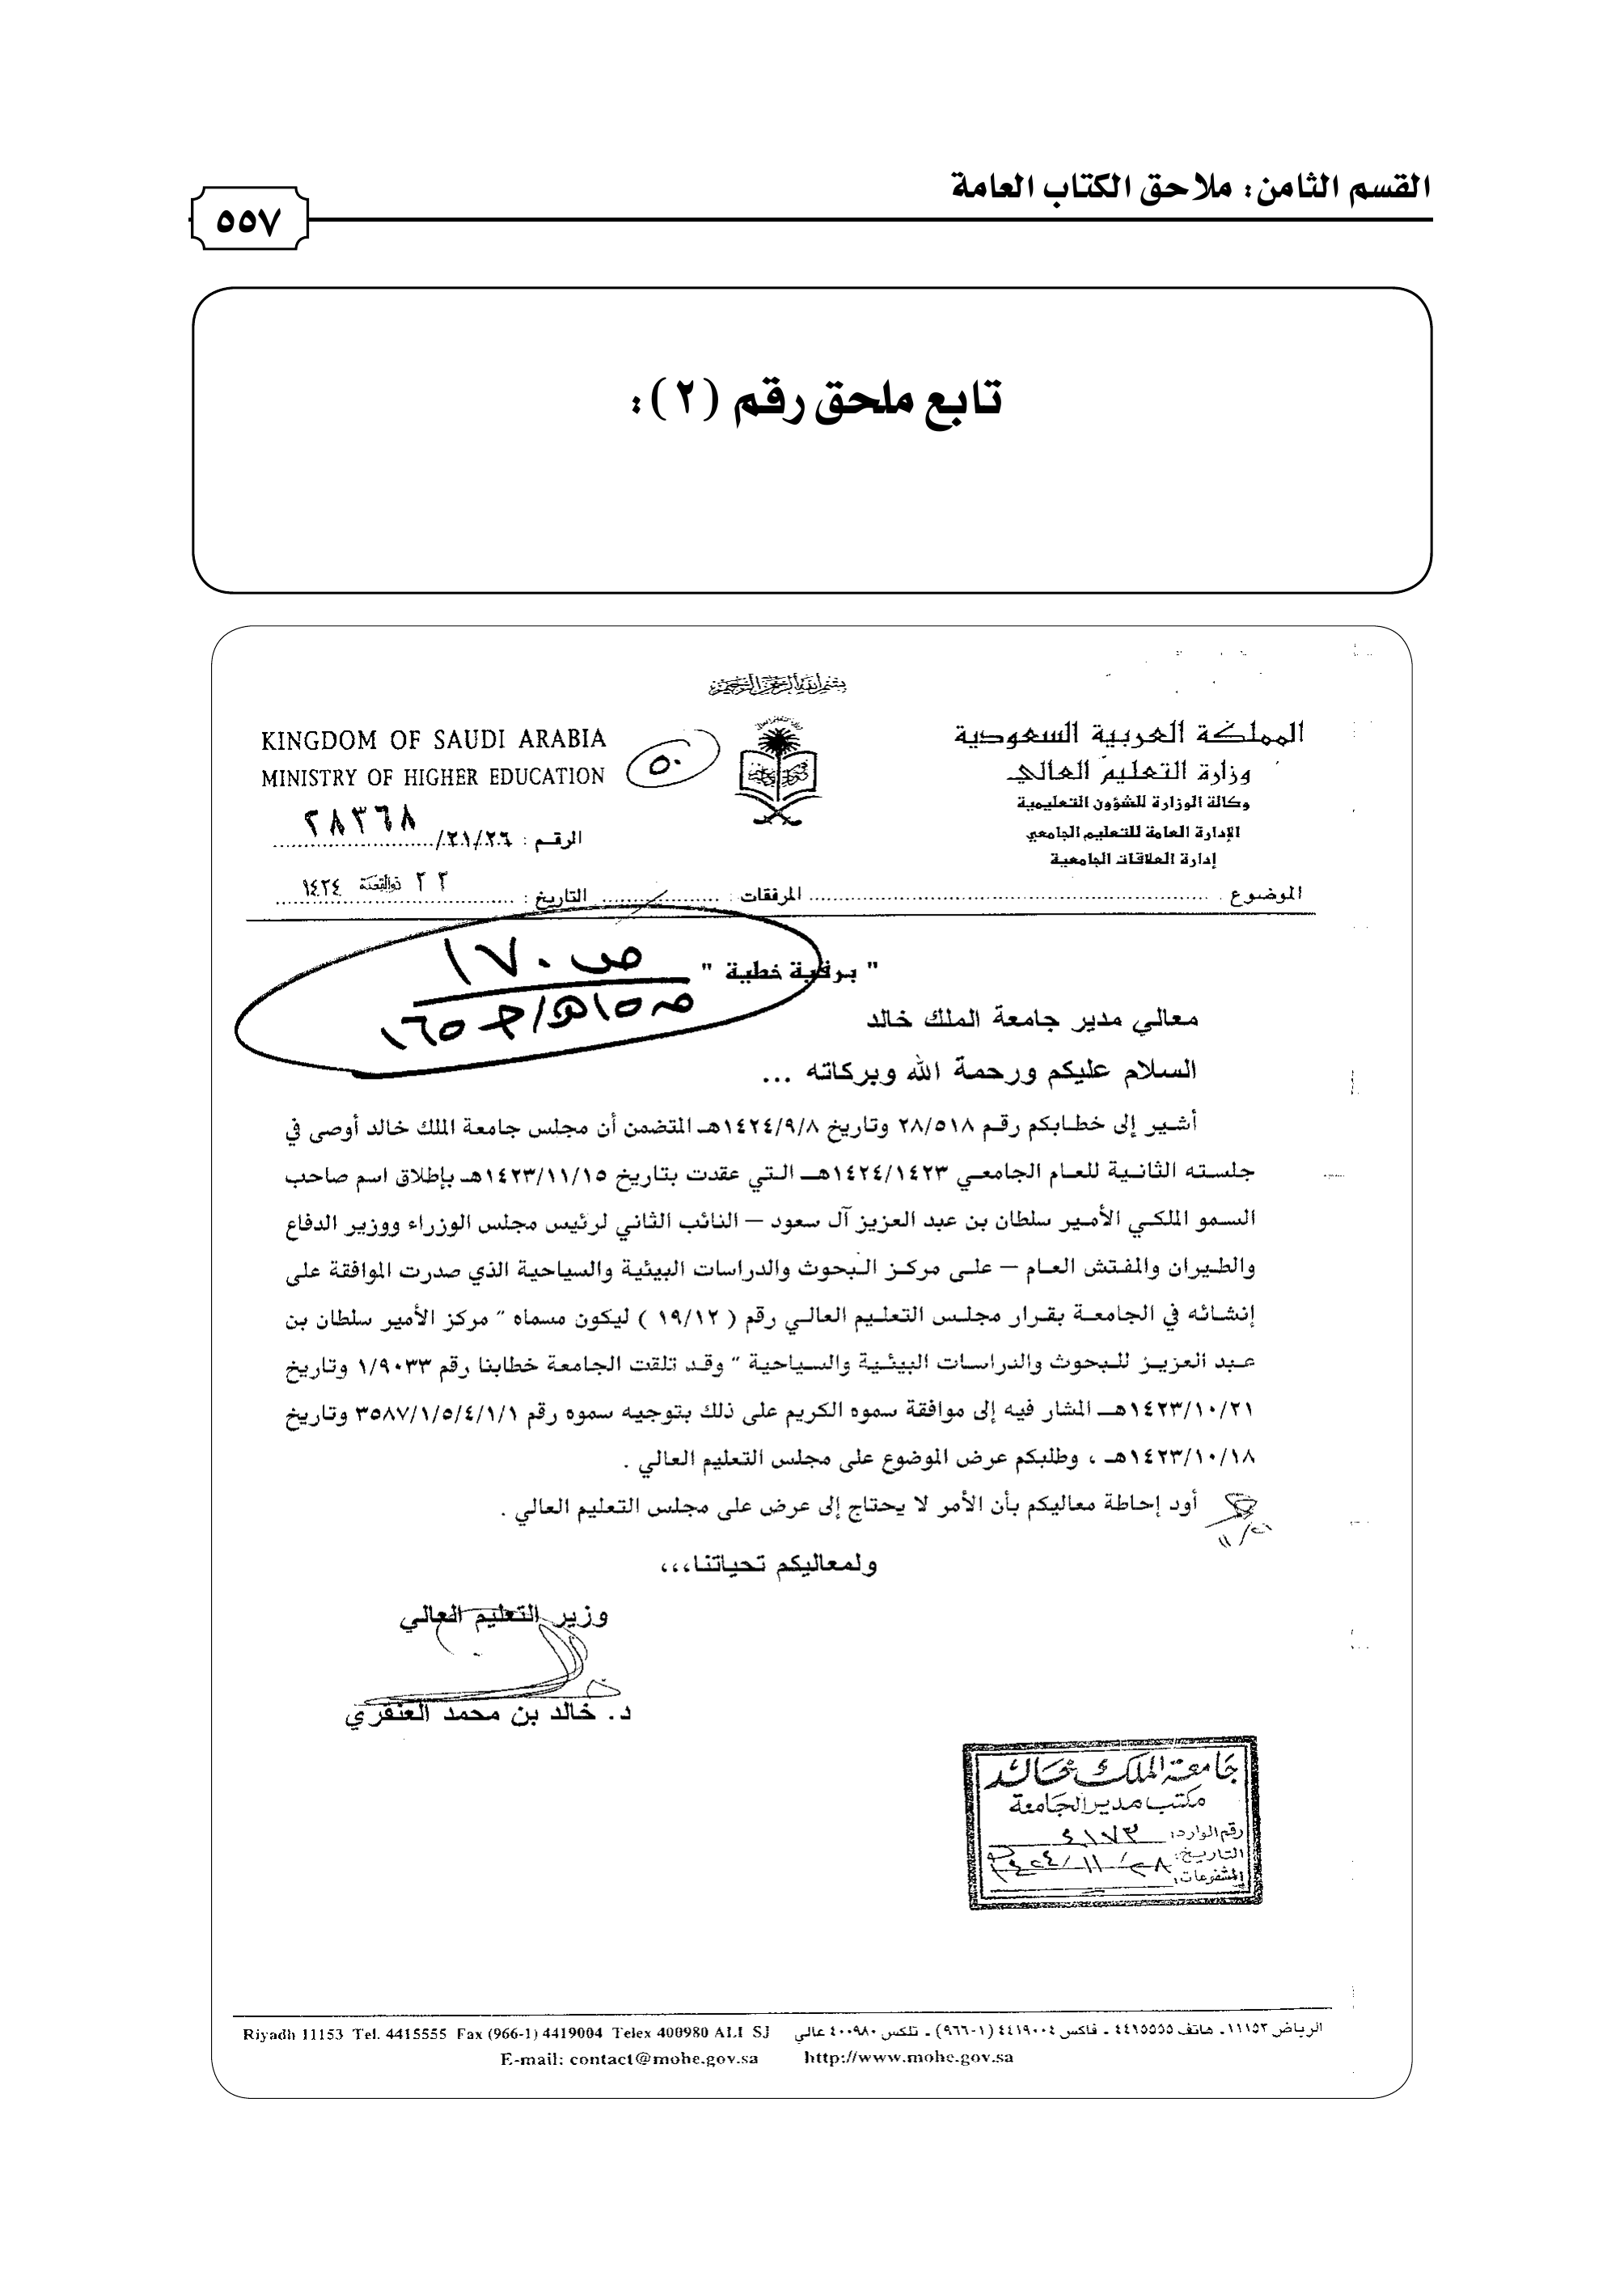 القسم الثامن: ملاحق الكتاب العامة
٥٥٧
تابع ملحق رقم (٢):
بسم الله الرحمن الرحيم
المملكة العربية السعودية
وزارة التعليم العالي
وكالة الوزارة للشؤون التعليمية
الإدارة العامة للتعليم الجامعي
إدارة العلاقات الجامعية
KINGDOM OF SAUDI ARABIA
MINISTRY OF HIGHER EDUCATION
٥٠
الرقم : ٢١/٢٦/ ٢٨٣٦٨
الموضوع : المرفقات : التاريخ : ٢٢ ذوالقعدة ١٤٢٤
" برقية خطية "
ص ١٧٠
معالي مدير جامعة الملك خالد
السلام عليكم ورحمة الله وبركاته ...
أشير إلى خطابكم رقم ٢٨/٥١٨ وتاريخ ١٤٢٤/٩/٨هـ المتضمن أن مجلس جامعة الملك خالد أوصى في
جلسته الثانية للعام الجامعي ١٤٢٤/١٤٢٣هـ التي عقدت بتاريخ ١٤٢٣/١١/١٥هـ بإطلاق اسم صاحب
السمو الملكي الأمير سلطان بن عبد العزيز آل سعود – النائب الثاني لرئيس مجلس الوزراء ووزير الدفاع
والطيران والمفتش العام – على مركز البحوث والدراسات البيئية والسياحية الذي صدرت الموافقة على
إنشائه في الجامعة بقرار مجلس التعليم العالي رقم ( ١٩/١٢ ) ليكون مسماه " مركز الأمير سلطان بن
عبد العزيز للبحوث والدراسات البيئية والسياحية " وقد تلقت الجامعة خطابنا رقم ١/٩٠٣٣ وتاريخ
١٤٢٣/١٠/٢١هـ المشار فيه إلى موافقة سموه الكريم على ذلك بتوجيه سموه رقم ٣٥٨٧/١/٥/٤/١/١ وتاريخ
١٤٢٣/١٠/١٨هـ ، وطلبكم عرض الموضوع على مجلس التعليم العالي .
أود إحاطة معاليكم بأن الأمر لا يحتاج إلى عرض على مجلس التعليم العالي .
ولمعاليكم تحياتنا،،،
وزير التعليم العالي
د. خالد بن محمد العنقري
جامعة الملك خالد
مكتب مدير الجامعة
رقم الوارد: ٤١٧٣
التاريخ:
المشفوعات:
الرياض ١١١٥٣ـ هاتف ٤٤١٥٥٥٥ ـ فاكس ٤٤١٩٠٠٤ (١-٩٦٦) ـ تلكس ٤٠٠٩٨٠ عالي
Riyadh 11153 Tel. 4415555 Fax (966-1) 4419004 Telex 400980 ALI SJ
E-mail: contact@mohe.gov.sa http://www.mohe.gov.sa